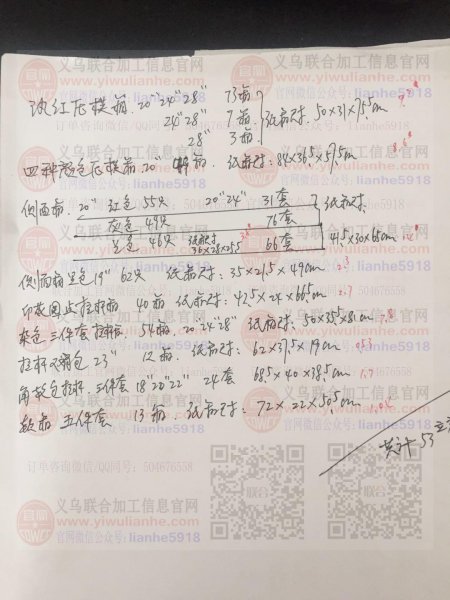 义乌联合加工信息官网
官网微信公众号: lianhe5918
玫红压模箱. 20" 24" 28" 73箱
24" 28" 7箱 纸箱尺寸: 50×31×75.5cm
28" 3箱
四种颜色压模箱 20" 箱 纸箱尺寸: 84×36.5×57.5cm
侧面箱. 20" 红色 55只 20" 24" 31套 纸箱尺寸
灰色 49只 76套
黑色 46只 纸箱尺寸 36×28×21.5 66套 41.5×30×65cm
侧面箱 黑色 19" 62只 纸箱尺寸: 35×21.5×49cm
印花圆点拉杆箱 40箱 纸箱尺寸: 42.5×24×66.5cm
灰色 三件套 拉杆箱 54箱. 20" 24" 28" 纸箱尺寸: 50×35.5×81cm
拉杆双肩包 23" 12箱. 纸箱尺寸: 62×37.5×19cm 0.53
角轮包拉杆. 三件套 18" 20" 22" 24套 68.5×40×38.5cm 1.7
五件套 13箱. 纸箱尺寸: 72×22×50.5cm
共计 53立方
订单咨询微信/QQ同号: 504676558
义乌联合加工信息官网
www.yiwulianhe.com
官网微信公众号: lianhe5918